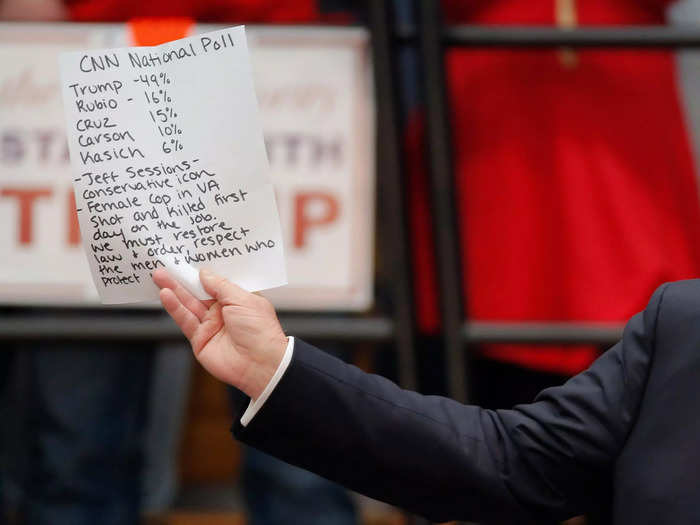 CNN National Poll
Trump - 49%
Rubio - 16%
CRUZ 15%
Carson 10%
Kasich 6%
- Jeff Sessions -
conservative icon
- Female Cop in VA
Shot and killed first
day on the job.
we must restore
law & order, respect
the men & women who
protect
STA TH
T MP